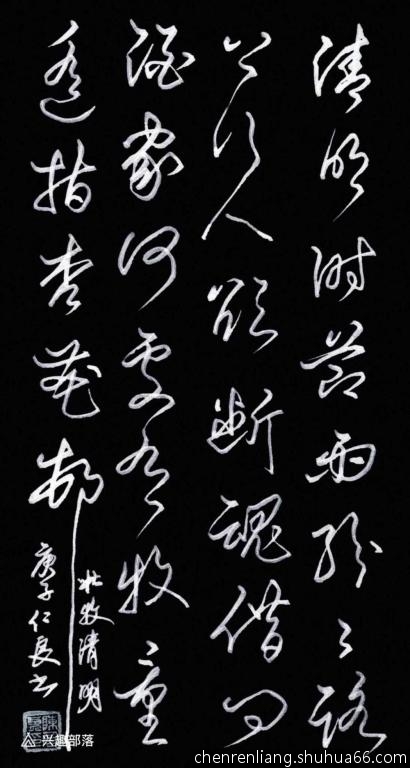 清明时节雨纷々路
上行人欲断魂借问
酒家何处有牧童
遥指杏花邨
杜牧清明
庚子仁良书
兴趣部落
chenrenliang.shuhua66.com